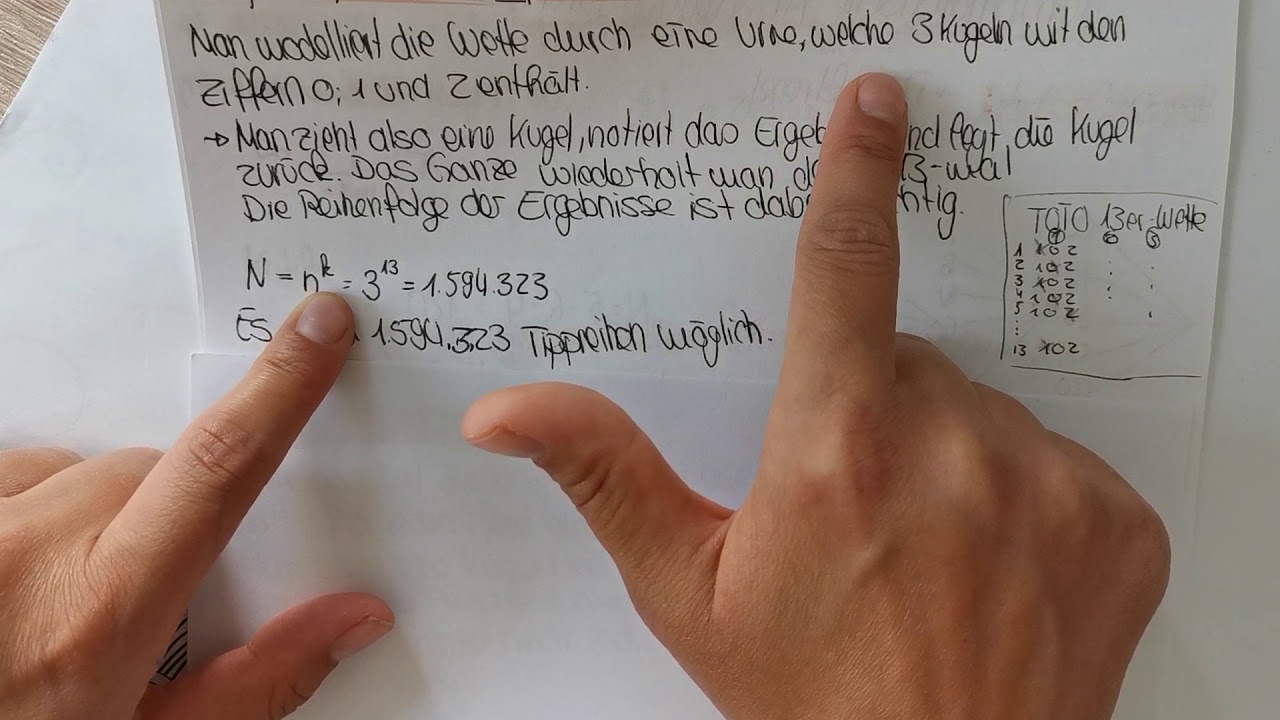 Man modelliert die Wette durch eine Urne, welche 3 Kugeln mit den
Ziffern 0; 1 und 2 enthält.
→ Man zieht also eine Kugel, notiert das Ergeb nd legt die Kugel
zurück. Das Ganze wiederholt man 13-mal
Die Reihenfolge der Ergebnisse ist dabe htig.
N = n^k = 3^13 = 1.594.323
Es 1.594.323 Tippreihen möglich.
TOTO 13er-Wette
1 1 0 2
2 1 0 2
3 1 0 2
4 1 0 2
5 1 0 2
⋮
13 1 0 2